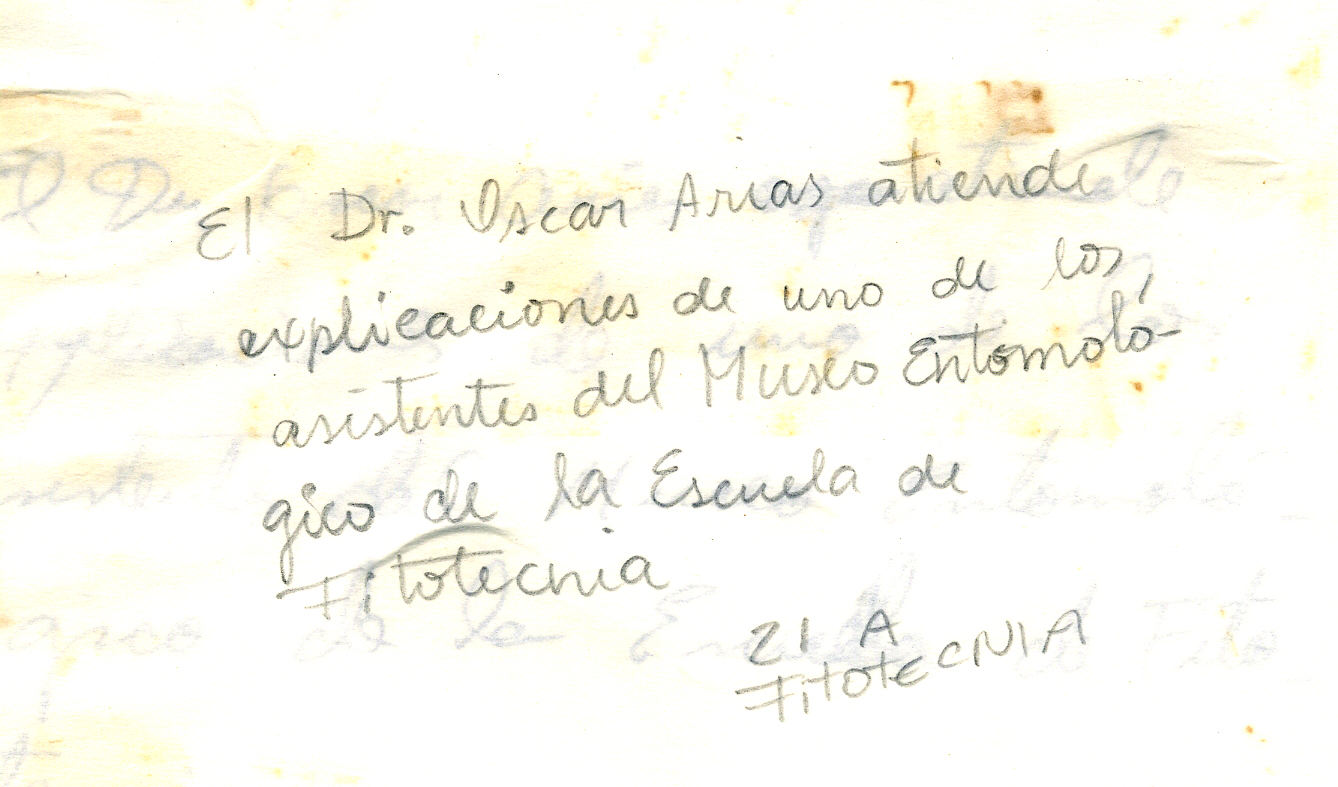 El Dr. Oscar Arias atiende
explicaciones de uno de los,
asistentes del Museo Entomoló-
gico de la Escuela de
Fitotecnia
21 A
FitotecNIA